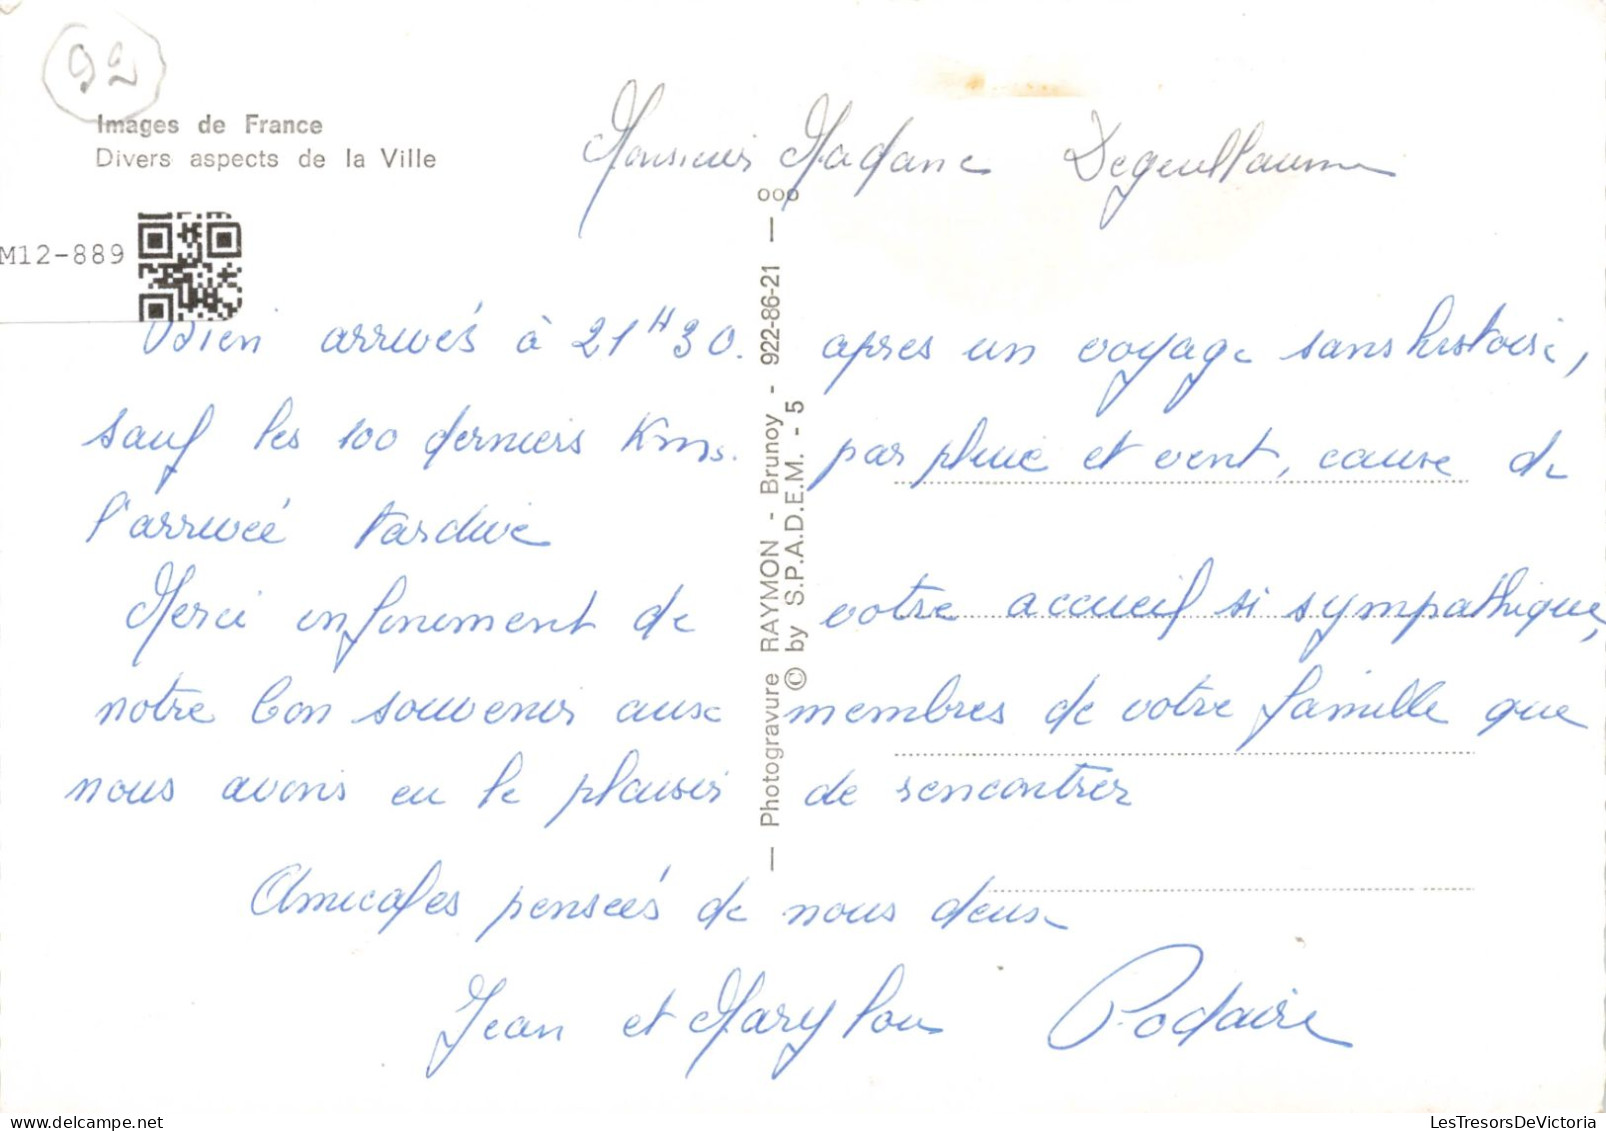 92
Images de France
Divers aspects de la Ville
M12-889
Monsieur Madame Deguillaume
Bien arrivés à 21H30. après un voyage sans histoire,
sauf les 100 derniers Kms. par pluie et vent, cause de
l'arrivée tardive
Merci infiniment de votre accueil si sympathique,
notre bon souvenir aux membres de votre famille que
nous avons eu le plaisir de rencontrer
Amicales pensées de nous deux
Jean et Marylou Rodaire
— Photogravure RAYMON - Brunoy - 922-86-21 — ooo
© by S.P.A.D.E.M. - 5
LesTresorsDeVictoria